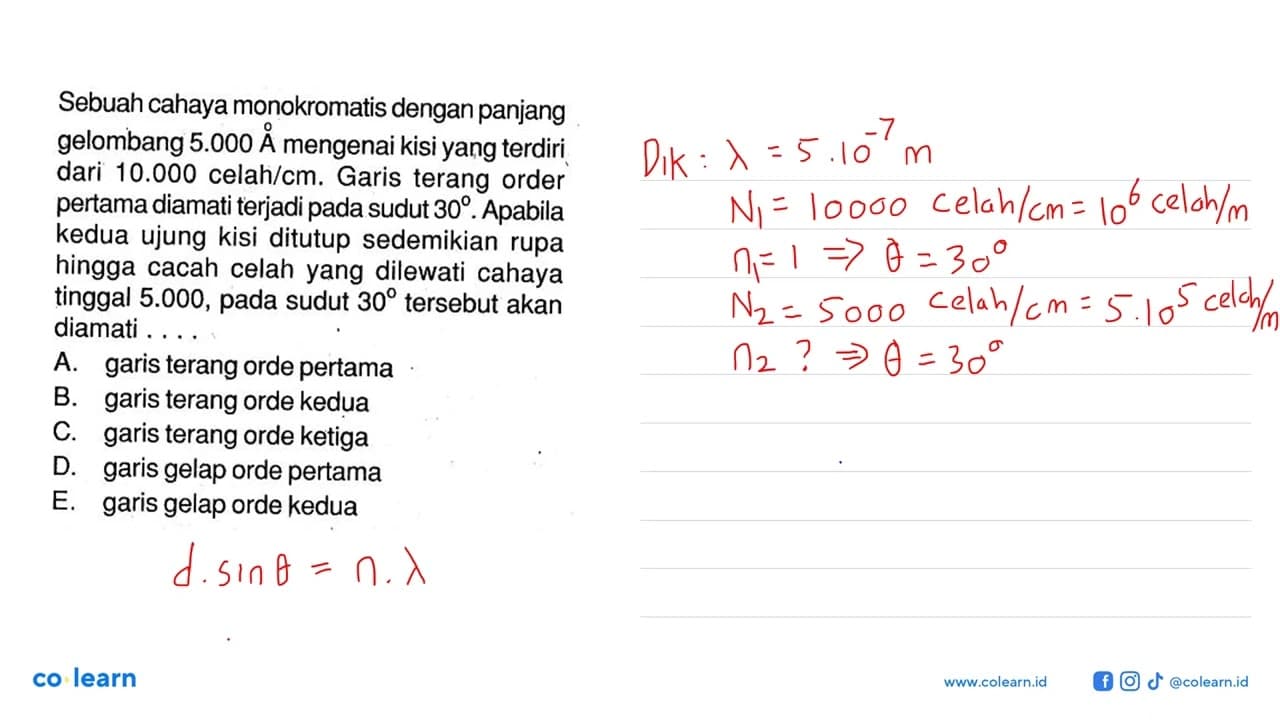 Sebuah cahaya monokromatis dengan panjang
gelombang 5.000 Å mengenai kisi yang terdiri
dari 10.000 celah/cm. Garis terang order
pertama diamati terjadi pada sudut 30°. Apabila
kedua ujung kisi ditutup sedemikian rupa
hingga cacah celah yang dilewati cahaya
tinggal 5.000, pada sudut 30° tersebut akan
diamati . . . .
A. garis terang orde pertama
B. garis terang orde kedua
C. garis terang orde ketiga
D. garis gelap orde pertama
E. garis gelap orde kedua
d. sin θ = n. λ
Dik : λ = 5.10⁻⁷ m
N₁ = 10000 celah/cm = 10⁶ celah/m
n₁ = 1 ⇒ θ = 30°
N₂ = 5000 celah/cm = 5.10⁵ celah/m
n₂ ? ⇒ θ = 30°
co learn
www.colearn.id
@colearn.id